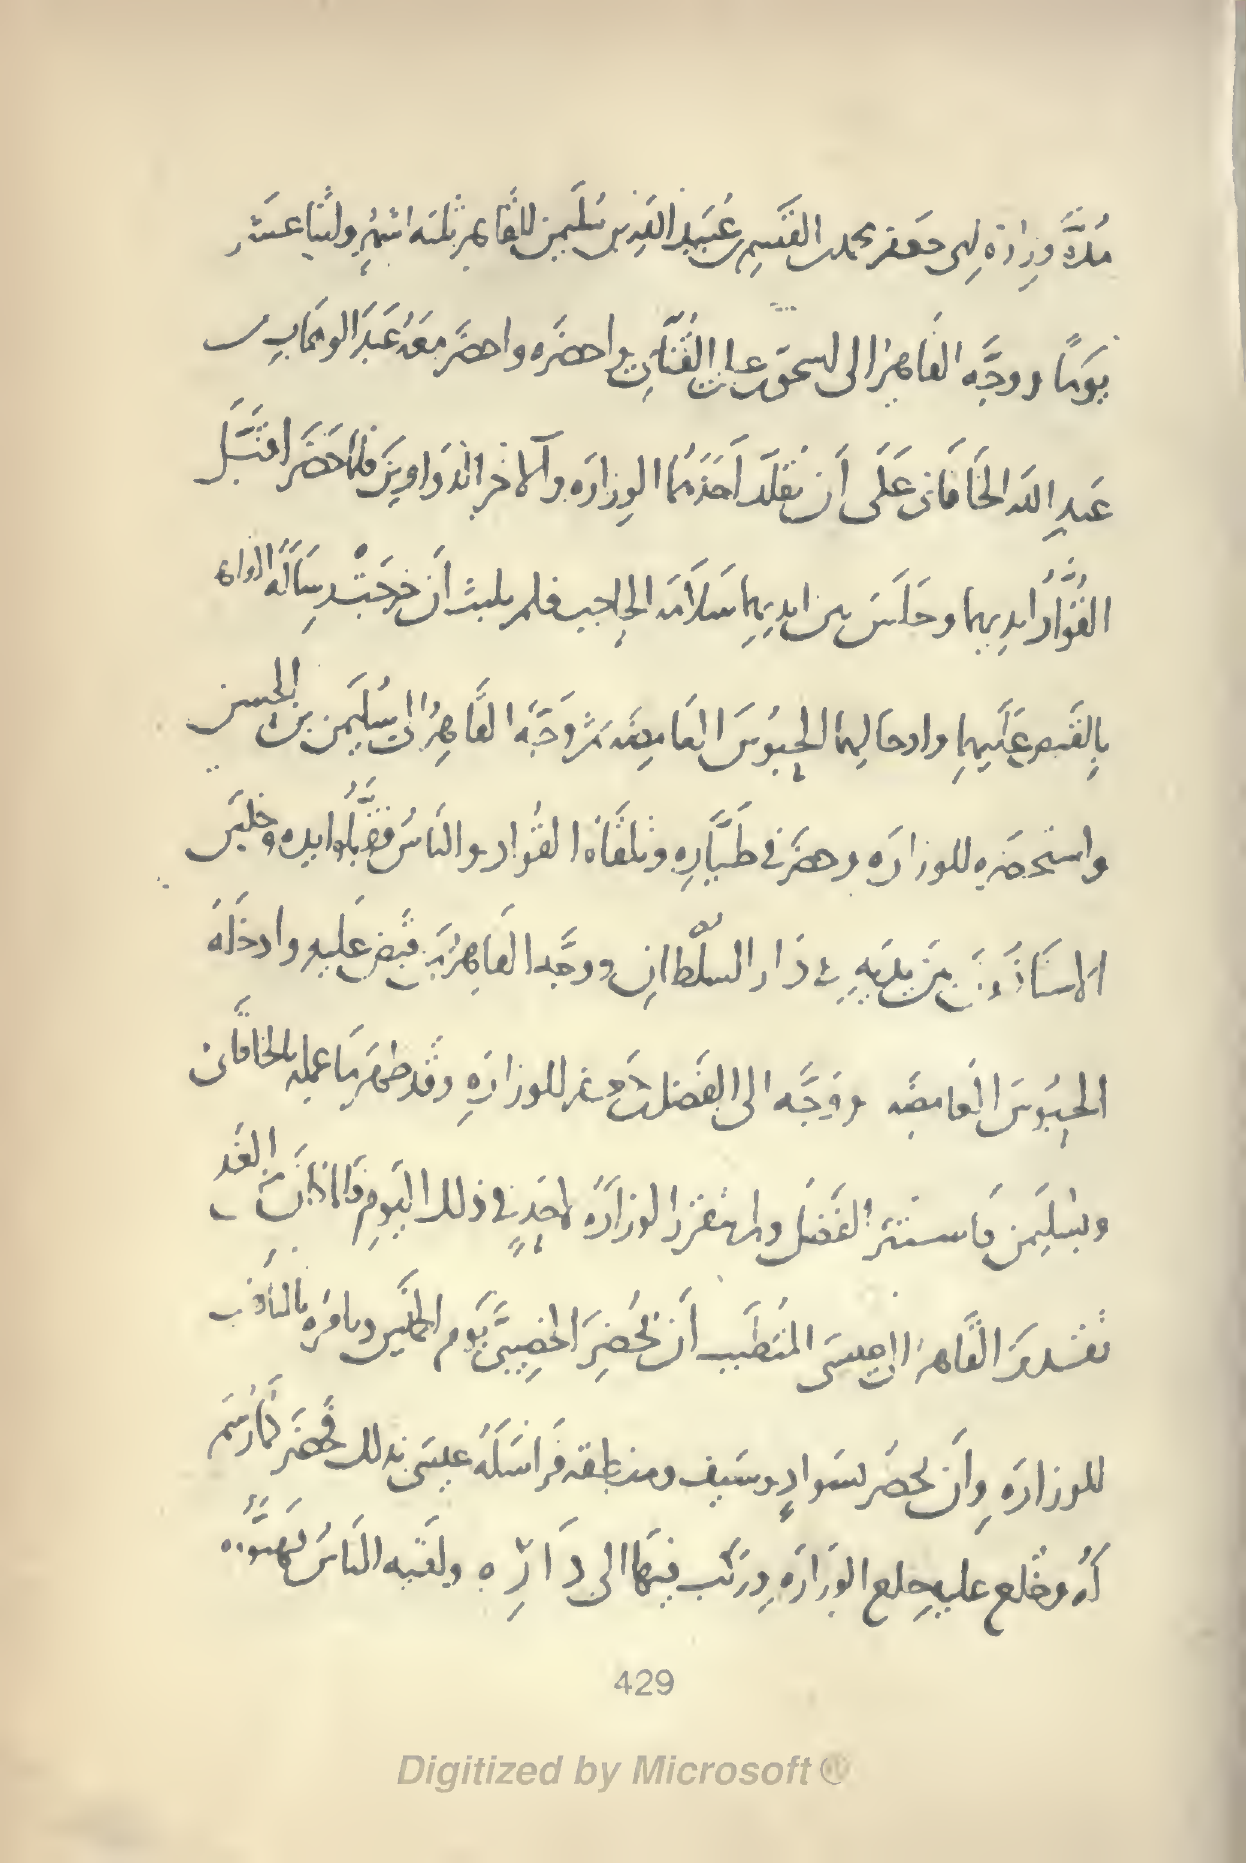 مُدَّة وِزارَة لابى جعفر محمد بن القَسِم بن عُبَيد الله بن سُلَيمن للقاهر ثلثه اشهُرٍ واثنا عشر
يَومًا ووجَّه القاهِرُ الى اسحق بن على القُنَّائى واحضَره واحضَر مَعَهُ عَبدَ الوهّاب بن
عَبدِ الله الخَاقَانى عَلَى أن يُقَلّدَ أحَدَهُما الوِزارَه والآخر الدَواوينَ فلمّا حَضَرا قبَّل
القُوَّادُ ايديهما وجَلَسَ بين ايدِيهِما سَلَامَه الحاجِب فلم يلبث أن خرَجَتْ رِسَالَةُ القاهر
بِالقَبضِ عَلَيهِما وادخالهما الحبُوسَ الغامِضَه ثمّ وَجَّه القاهِرُ الى سُلَيمن بن الحسن
واستحضَره للوزارَه وحضَر فى طَيَّارِه وتلقّاهُ القُوّاد والنّاسُ فقَبَّلُوا يده وجَلَس
الاستاذُونَ بَينَ يَدَيهِ فى دَار السلطانِ ووجَّه القاهِرُ بمَن قَبَضَ عَليهِ وادخَلَهُ
الحبُوسَ الغامِضَه ووَجَّه الى الفَضل بن جَعفر للوزارَهِ وقد ظهَرَ مَا عمله بالخاقانى
وبسُلَيمن فاستتر الفَضلُ ولم تتقرّر الوزارَةُ لاحَدٍ فى ذلك اليَومِ فلمّا كانَ من الغَد
تقدّمَ القاهرُ الى عيسَى المُتطَبّب أن يُحضِرَ الخصيبىَّ يَومَ الخميس ويامُرَه بالتأهّب
للوزارَه وأن يحضُر بسَوادٍ وسَيف ومنطقه فَراسَلَهُ عيسَى بذلك فحضَر كما رُسِمَ
لَهُ وخُلِع عليهِ خِلَع الوزارَه ورَكب فيهَا الى دَارِه ولقيَه النّاسُ يُهَنّوُنه
429
Digitized by Microsoft ®